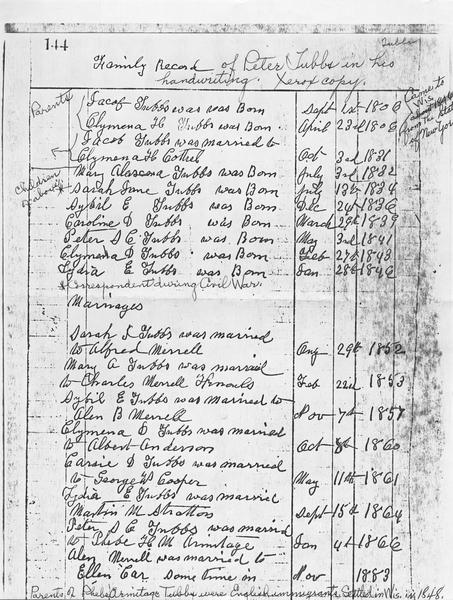 144
Tubbs
Family Record of Peter Tubbs in his
handwriting. Xerox copy.
Parents
Came to
Wis.
about 1846
from the State
of New York
Jacob Tubbs was was Born Sept 1st 1806
Clymena H Tubbs was Born April 23d 1806
Jacob Tubbs was married to
Clymena H Cothel Oct 3d 1831
Children
above
Mary Tubbs was Born July 3d 1832
Sarah Jane Tubbs was Born July 13th 1834
Sybil E Tubbs was Born Dec 24th 1836
Caroline D Tubbs was Born March 29th 1839
Peter S C Tubbs was Born May 3rd 1841
Clymena D Tubbs was Born Feb 27th 1843
Lydia E Tubbs was Born Jan 28th 1846
Correspondent during Civil War.
Marriages
Sarah J Tubbs was married
to Alfred Merrell Aug 29th 1852
Mary A Tubbs was married
to Charles Merrell Feb 22d 1853
Sybil E Tubbs was married to
Alen B Merrell Nov 7th 1857
Clymena D Tubbs was married
to Albert Anderson Oct 8th 1860
Carrie D Tubbs was married
to George W Cooper May 11th 1861
Lydia E Tubbs was married
Martin M Stratton Sept 15th 1864
Peter S C Tubbs was married
to Phebe H M Armitage Jan 4th 1866
Alen Merrell was married to
Ellen Car some time in Nov 1883
Parents of Phebe Armitage Tubbs were English immigrants Settled in Wis. in 1848.